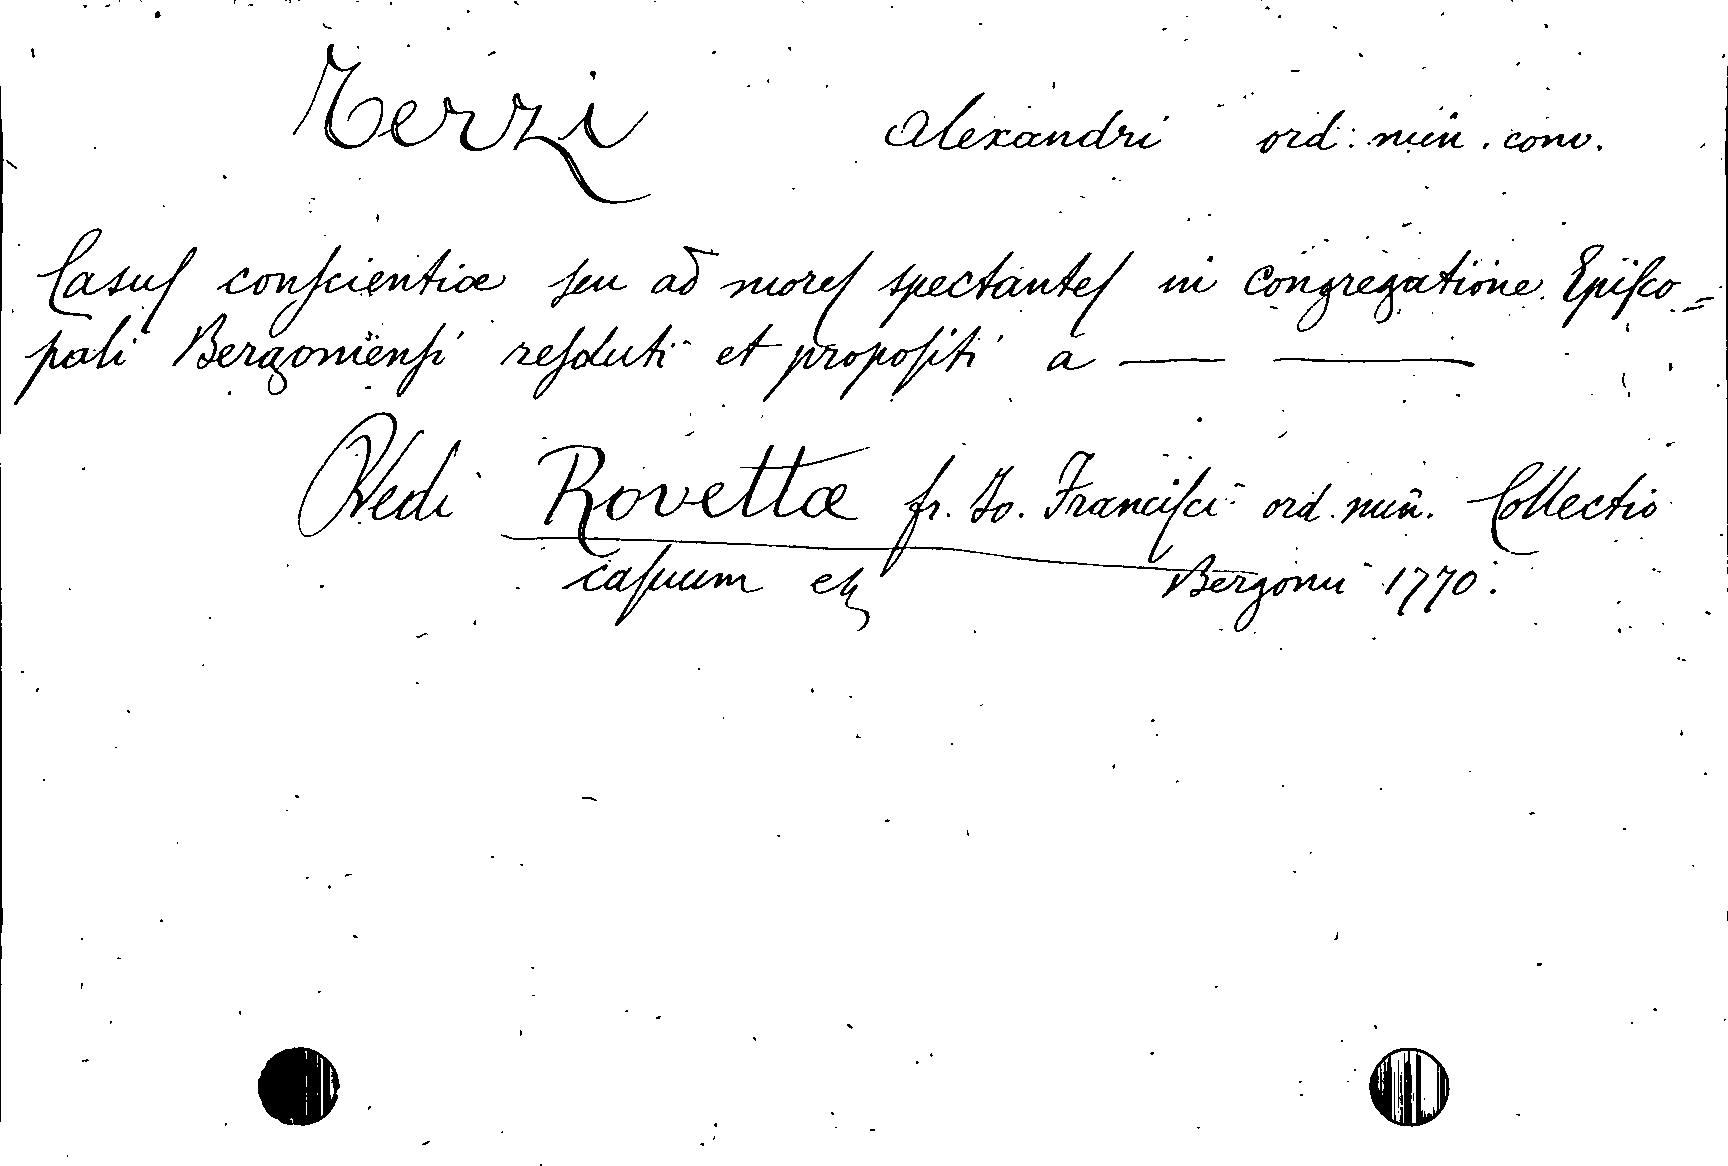 Terzi Alexandri ord: min. conv.
Casuſ conſcientiæ ſeu ad moreſ spectanteſ in congregatione Epiſco=
pali Bergomenſi reſoluti et propoſiti a — —
Vedi Rovetta fr. Jo. Franciſci ord. min. Collectio
caſuum etc Bergomi 1770.